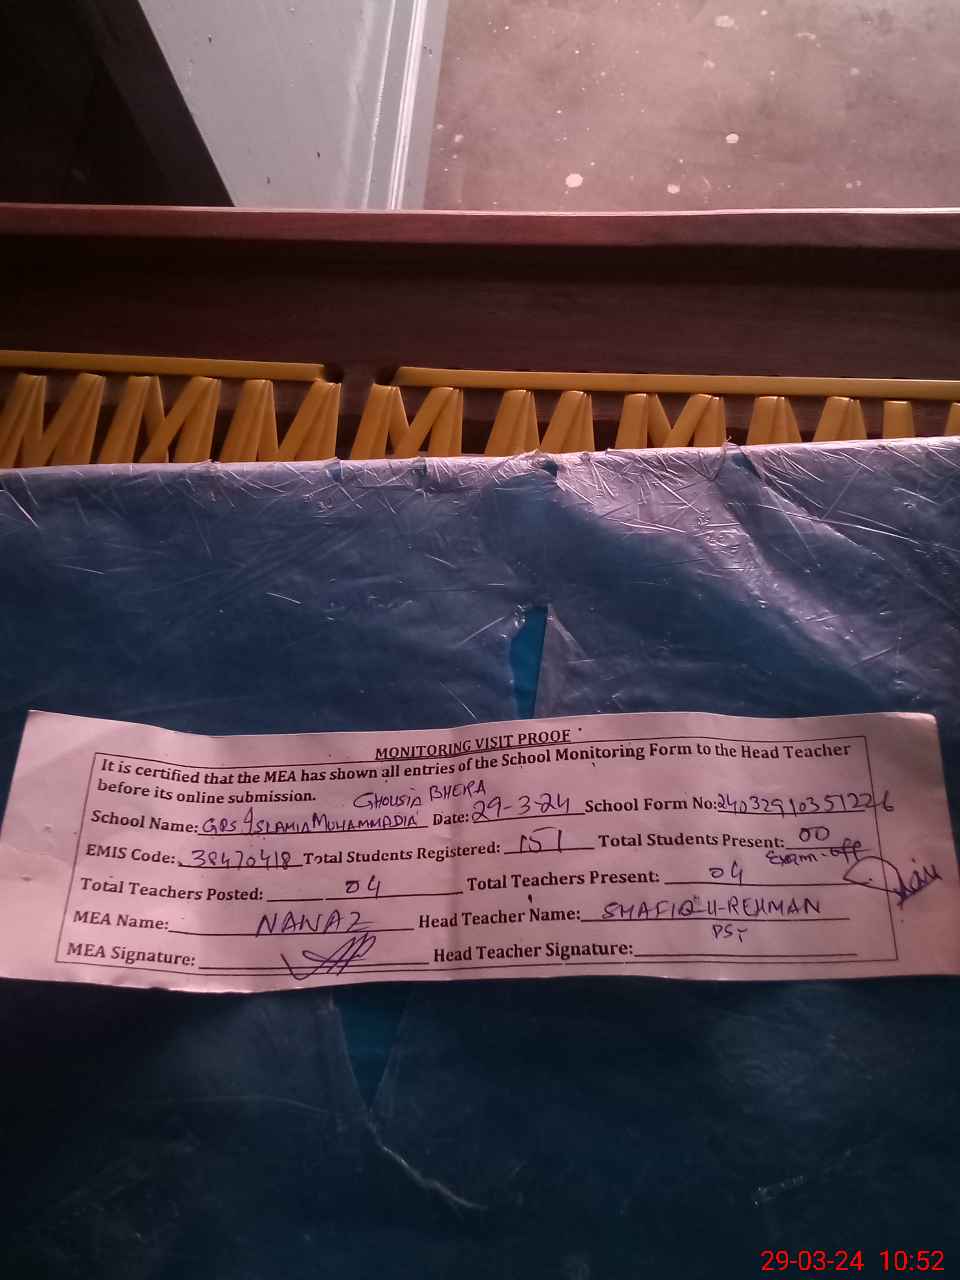 MONITORING VISIT PROOF
It is certified that the MEA has shown all entries of the School Monitoring Form to the Head Teacher
before its online submission.
GHOUSIA BHERA
School Name: GPS ISLAMIA MUHAMMADIA Date: 29-3-24 School Form No: 24032910351226
EMIS Code: 38470418 Total Students Registered: 151 Total Students Present: 00
Exam-off
Total Teachers Posted: 04 Total Teachers Present: 04
MEA Name: NAWAZ Head Teacher Name: SHAFIQ-U-REHMAN
PST
MEA Signature: Head Teacher Signature:
29-03-24 10:52